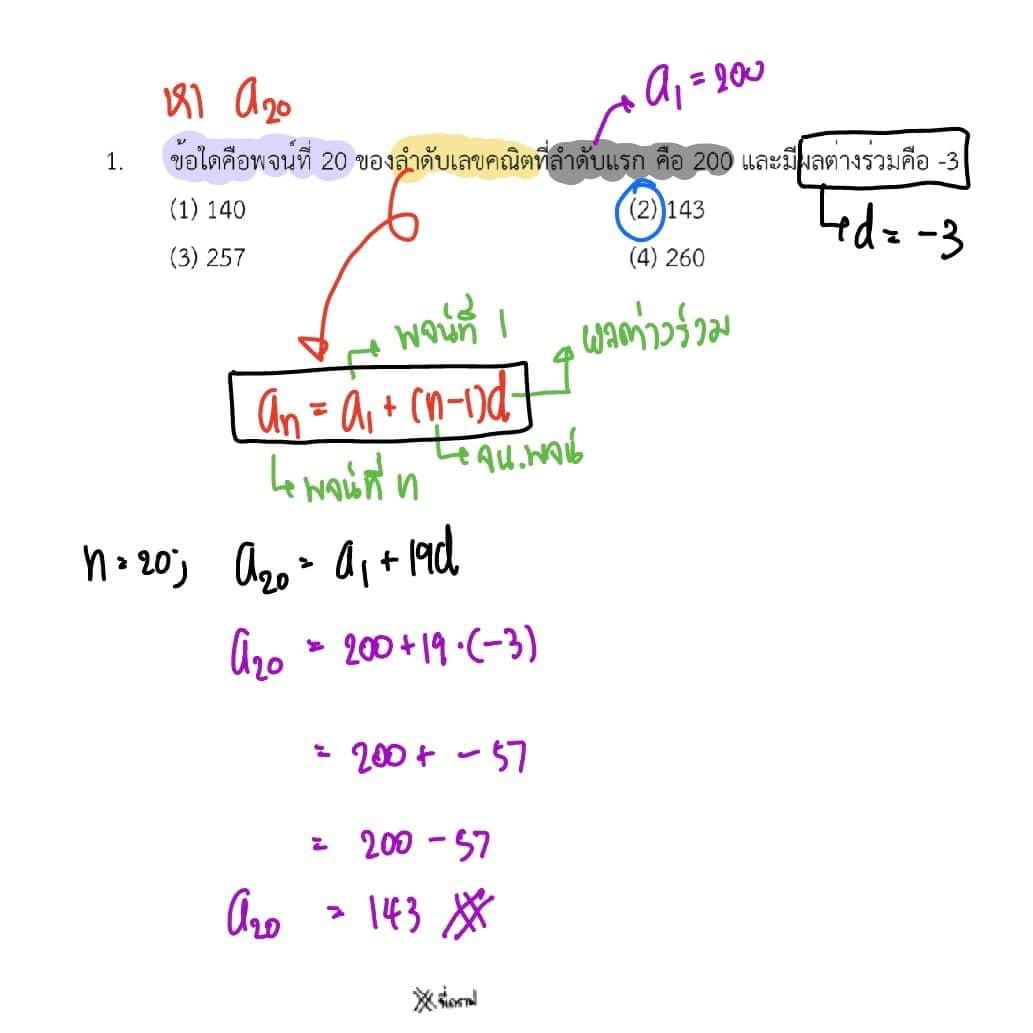 หา a₂₀
a₁ = 200
1. ข้อใดคือพจน์ที่ 20 ของลำดับเลขคณิตที่ลำดับแรก คือ 200 และมีผลต่างร่วมคือ -3
(1) 140 (2) 143
d = -3
(3) 257 (4) 260
พจน์ที่ 1
ผลต่างร่วม
aₙ = a₁ + (n-1)d
จน.พจน์
พจน์ที่ n
n = 20; a₂₀ = a₁ + 19d
a₂₀ = 200 + 19·(-3)
= 200 + -57
= 200 - 57
a₂₀ = 143